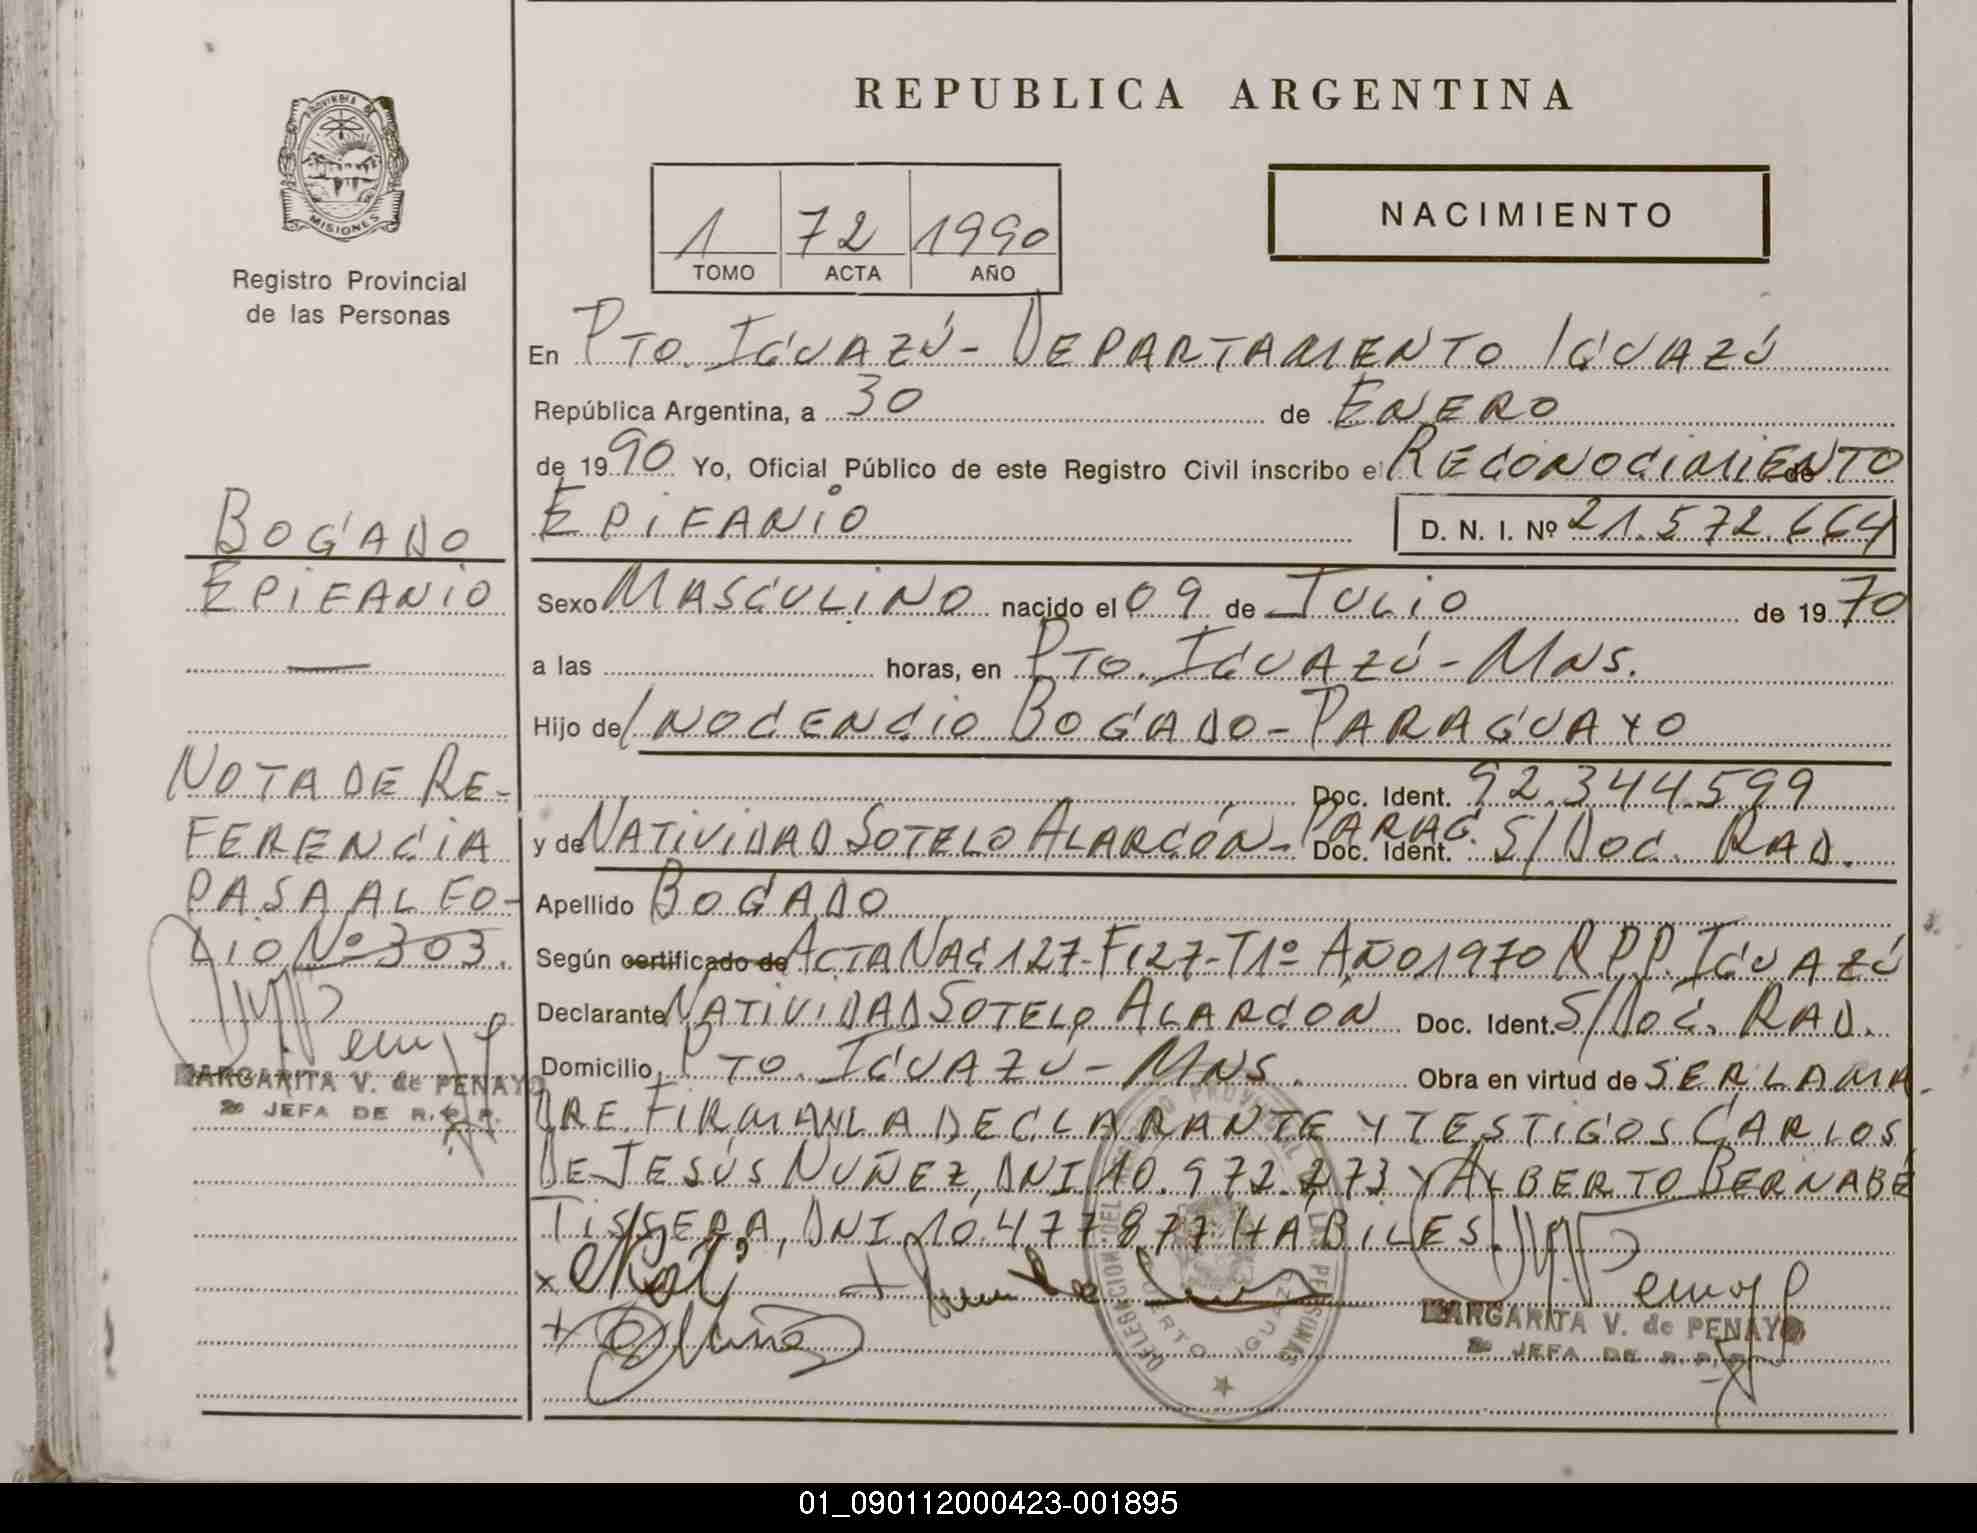 REPUBLICA ARGENTINA
PROVINCIA DE
MISIONES
Registro Provincial
de las Personas
1 72 1990
TOMO ACTA AÑO
NACIMIENTO
En PTO. IGUAZÚ - DEPARTAMENTO IGUAZÚ
República Argentina, a 30 de ENERO
de 1990 Yo, Oficial Público de este Registro Civil inscribo el RECONOCIMIENTO de
EPIFANIO D. N. I. Nº 21.572.664
Sexo MASCULINO nacido el 09 de JULIO de 1970
a las horas, en PTO. IGUAZÚ - MNS.
Hijo de INOCENCIO BOGADO - PARAGUAYO
Doc. Ident. 92.344.599
y de NATIVIDAD SOTELO ALARCÓN - PARAG. Doc. Ident. S/DOC. RAD.
Apellido BOGADO
Según certificado de ACTA NAC 127 - F127 - T1º AÑO 1970 R.P.P. IGUAZÚ
Declarante NATIVIDAD SOTELO ALARCÓN Doc. Ident. S/DOC. RAD.
Domicilio PTO. IGUAZU - MNS. Obra en virtud de SER LA MA-
DRE. FIRMAN LA DECLARANTE Y TESTIGOS CARLOS
DE JESÚS NUÑEZ, DNI 10.972.273 Y ALBERTO BERNABÉ
TISSERA, DNI 10.477.877 HÁBILES.
MARGARITA V. de PENAYO
2º JEFA DE R.P.P.
DELEGACION DEL REGISTRO PROVINCIAL DE LAS PERSONAS
PUERTO IGUAZU
BOGADO
EPIFANIO
NOTA DE RE-
FERENCIA
PASA AL FO-
LIO Nº 303.
MARGARITA V. de PENAYO
2º JEFA DE R.P.P.
01_090112000423-001895